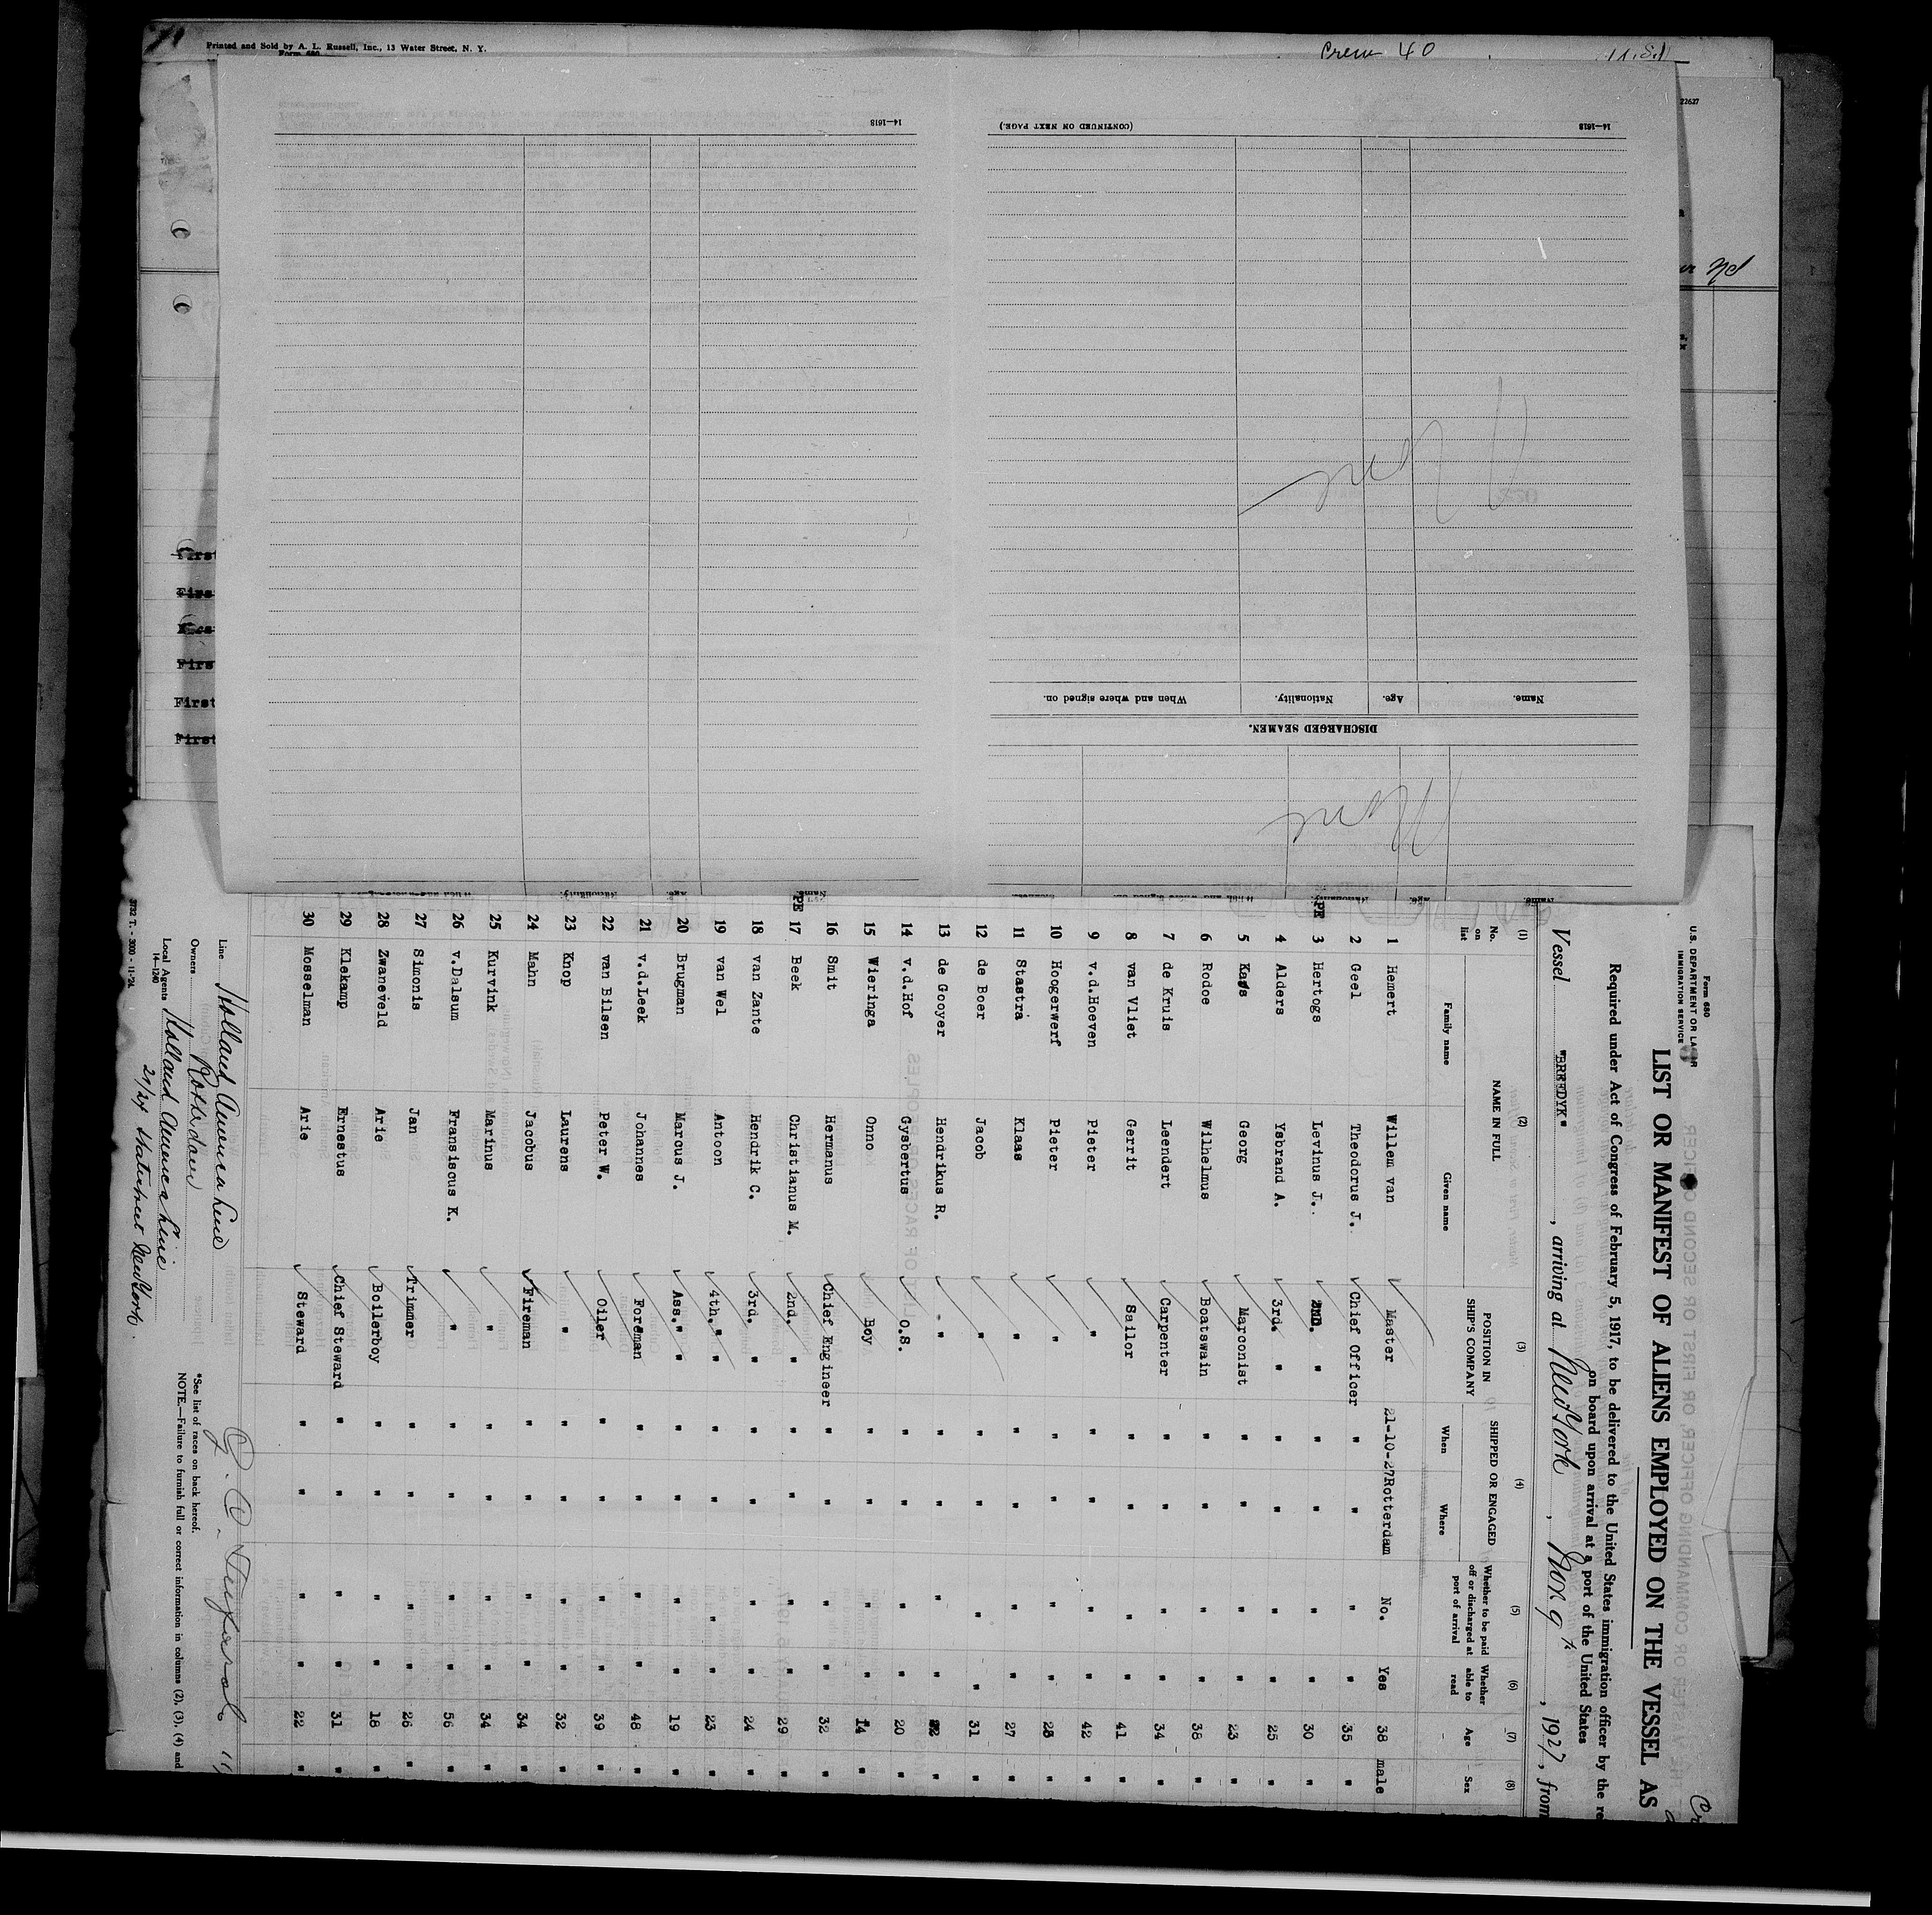 Printed and Sold by A. L. Russell, Inc., 13 Water Street, N. Y.
Form 680
Crew 40
22627
First
First
First
First
First
14—1618
(CONTINUED ON NEXT PAGE.)
14—1618
Name. Age. Nationality. When and where signed on.
DISCHARGED SEAMEN.
None
None
Form 680
U. S. DEPARTMENT OF LABOR
IMMIGRATION SERVICE
LIST OR MANIFEST OF ALIENS EMPLOYED ON THE VESSEL AS
Required under Act of Congress of February 5, 1917, to be delivered to the United States immigration officer by the re
on board upon arrival at a port of the United States
Vessel "BREEDYK" , arriving at New York , Nov 9th , 1927, from
(1) (2) (3) (4) (5) (6) (7) (8)
No. on list NAME IN FULL Family name Given name POSITION IN SHIP'S COMPANY SHIPPED OR ENGAGED When Where Whether to be paid off or discharged at port of arrival Whether able to read Age Sex
1 Hemert Willem van Master 21-10-27 Rotterdam No. Yes 38 male
2 Geel Theodorus J. Chief Officer " " " " 35 "
PE 3 Hertogs Levinus J. 2ND. " " " " " 30 "
4 Alders Ysbrand A. 3rd. " " " " " 25 "
5 Kaas Georg Marconist " " " " 23 "
6 Rodoe Wilhelmus Boatswain " " " " 38 "
7 de Kruis Leendert Carpenter " " " " 34 "
8 van Vliet Gerrit Sailor " " " " 41 "
9 v.d.Hoeven Pieter " " " " " 42 "
10 Hoogerwerf Pieter " " " " " "
11 Stastra Klaas " " " " " 27 "
12 de Boer Jacob " " " " " 31 "
13 de Gooyer Hendrikus R. " " " " " "
14 v.d.Hof Gysbertus O.S. " " " " 20 "
15 Wieringa Onno Boy " " " " 14 "
16 Smit Hermanus Chief Engineer " " " " 32 "
PE 17 Beek Christianus M. 2nd. " " " " " 29 "
18 van Zante Hendrik C. 3rd. " " " " " 24 "
19 van Wel Antoon 4th. " " " " " 23 "
20 Brugman Marcus J. Ass. " " " " " " 19 "
21 v.d.Leek Johannes Foreman " " " " 48 "
22 van Bilsen Peter W. Oiler " " " " 39 "
23 Knop Laurens " " " " " 32 "
24 Mahn Jacobus Fireman " " " " 34 "
25 Kurvink Marinus " " " " " 34 "
26 v.Dalsum Fransiscus K. " " " " " 56 "
27 Simonis Jan Trimmer " " " " 26 "
28 Zwaneveld Arie Boilerboy " " " " 18 "
29 Klekamp Ernestus Chief Steward " " " " 31 "
30 Mosselman Arie Steward " " " " 22 "
Line Holland America Line
Owners Rotterdam
Local Agents Holland America Line
14—1240
21/24 State street New York.
*See list of races on back hereof.
NOTE.—Failure to furnish full or correct information in columns (2), (3), (4) and
3732 T. - 3000 - 11-'24